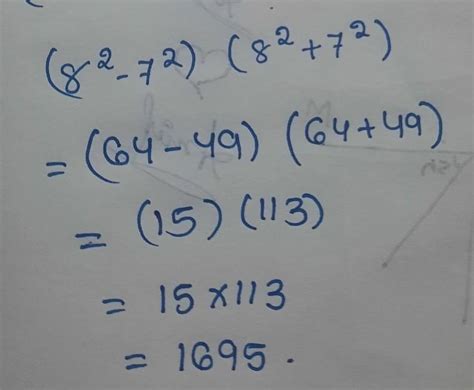 (8²-7²) (8²+7²)
= (64-49) (64+49)
= (15) (113)
= 15×113
= 1695.